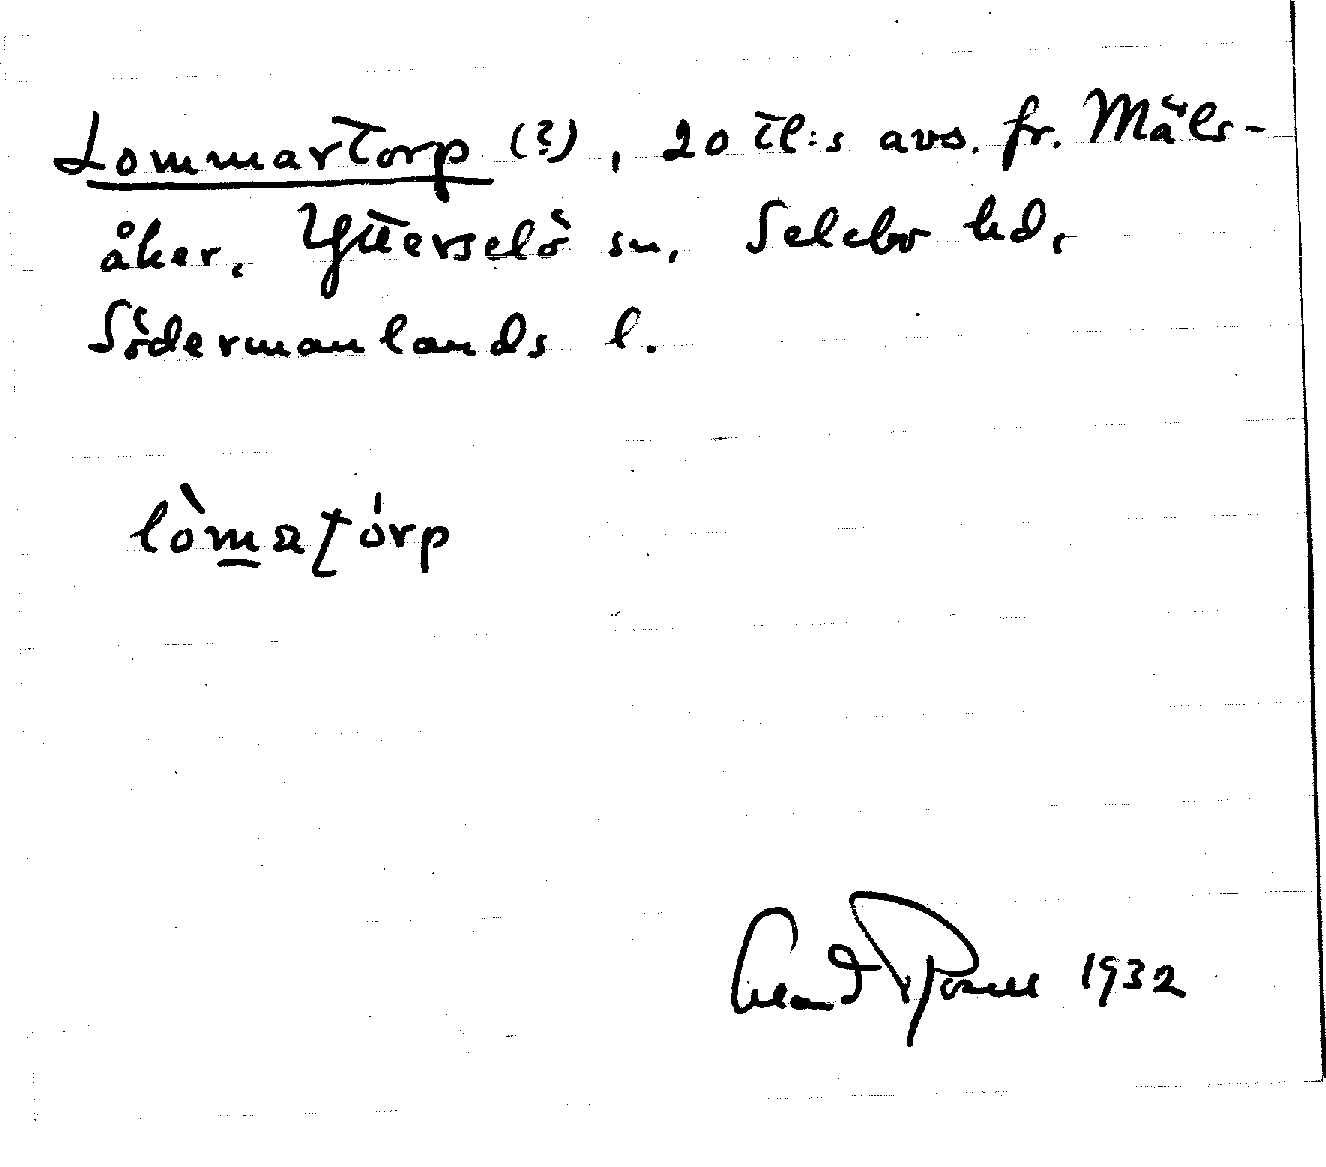 Lommartorp (?), 20 tl:s avs. fr. Mäls-
åker, Ytterselö sn, Selebo hd,
Södermanlands l.
lòmatórp
1932